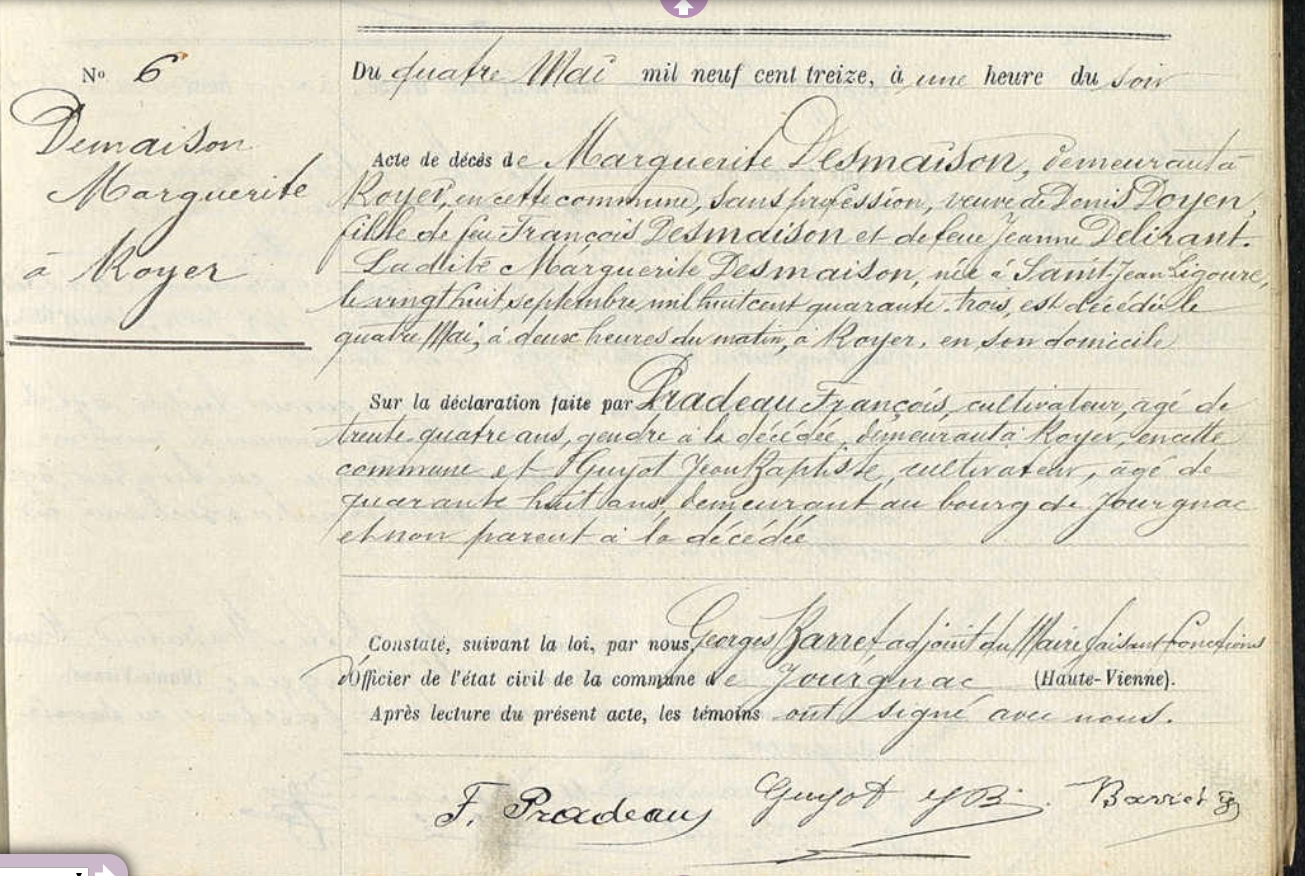 N° 6
Demaison
Marguerite
à Royer
Du quatre Mai mil neuf cent treize, à une heure du soir
Acte de décès de Marguerite Desmaison, demeurant à
Royer, en cette commune, sans profession, veuve de Denis Doyen,
fille de feu François Desmaison et de feue Jeanne Delirant.
Ladite Marguerite Desmaison, née à Saint-Jean Ligoure,
le vingt huit septembre mil huit cent quarante-trois, est décédée le
quatre Mai, à deux heures du matin, à Royer, en son domicile
Sur la déclaration faite par Pradeau François, cultivateur, âgé de
trente quatre ans, gendre à la décédée, demeurant à Royer, en cette
commune et Guyot Jean Baptiste, cultivateur, âgé de
quarante huit ans, demeurant au bourg de Jourgnac
et non parent à la décédée
Constaté, suivant la loi, par nous, Georges Barret, adjoint du Maire faisant fonctions
d'Officier de l'état civil de la commune de Jourgnac (Haute-Vienne).
Après lecture du présent acte, les témoins ont signé avec nous.
F. Pradeau Guyot JB. Barret